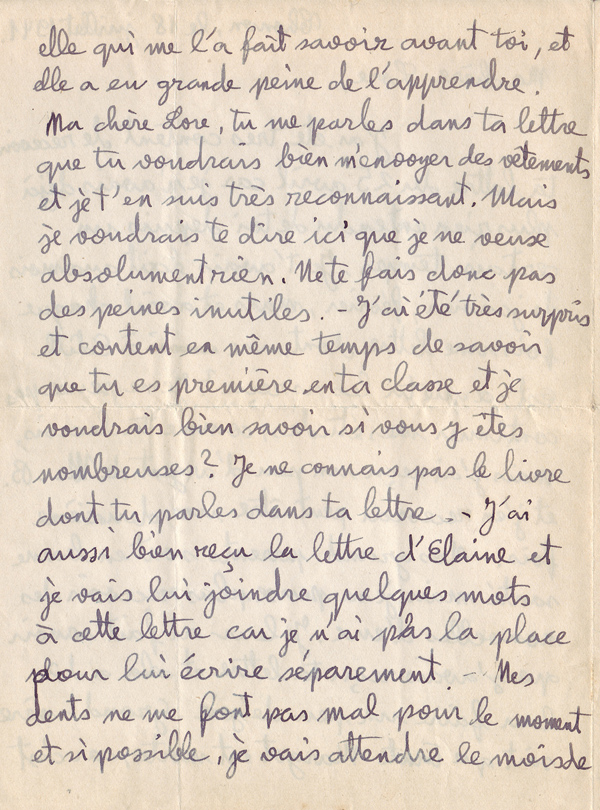 elle qui me l'a fait savoir avant toi, et
elle a eu grande peine de l'apprendre.
Ma chère Lore, tu me parles dans ta lettre
que tu voudrais bien m'envoyer des vêtements
et je t'en suis très reconnaissant. Mais
je voudrais te dire ici que je ne veuse
absolument rien. Ne te fais donc pas
des peines inutiles. - J'ai été très surpris
et content en même temps de savoir
que tu es première en ta classe et je
voudrais bien savoir si vous y êtes
nombreuses? Je ne connais pas le livre
dont tu parles dans ta lettre. - J'ai
aussi bien reçu la lettre d'Elaine et
je vais lui joindre quelques mots
à cette lettre car je n'ai pas la place
pour lui écrire séparement. - Mes
dents ne me font pas mal pour le moment
et si possible, je vais attendre le mois de